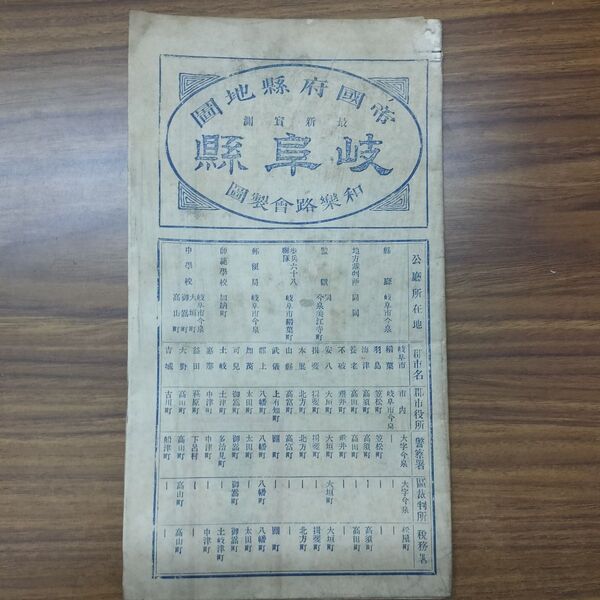 帝國府縣地圖
最新實測
岐阜縣
和樂路會製圖
公廳所在地
縣廳 岐阜市今泉
地方裁判所 同 同
監獄 同 今泉美江寺町
步兵六十八聯隊 岐阜市稻葉町
郵便局 岐阜市今泉
師範學校 加納町
中學校 岐阜市今泉 大垣町 御嵩町 高山町
郡市名 郡市役所 警察署 區裁判所 稅務署
岐阜市 市内 大字今泉 大字今泉
稻葉 岐阜市今泉 — —
羽島 笠松町 笠松町 — —
海津 高須町 高須町 — 高須町
養老 高田町 高田町 — 高田町
不破 垂井町 垂井町 — —
安八 大垣町 大垣町 大垣町 大垣町
揖斐 揖斐町 揖斐町 — 揖斐町
本巢 北方町 北方町 — 北方町
山縣 高富町 高富町 — —
武儀 上有知町 關町 — 關町
郡上 八幡町 八幡町 八幡町 八幡町
加茂 太田町 太田町 — 太田町
可兒 御嵩町 御嵩町 御嵩町 御嵩町
土岐 土岐津町 多治見町 — 土岐津町
惠那 中津町 中津町 — 中津町
益田 萩原町 下呂村 — —
大野 高山町 高山町 高山町 高山町
吉城 古川町 船津町 — —